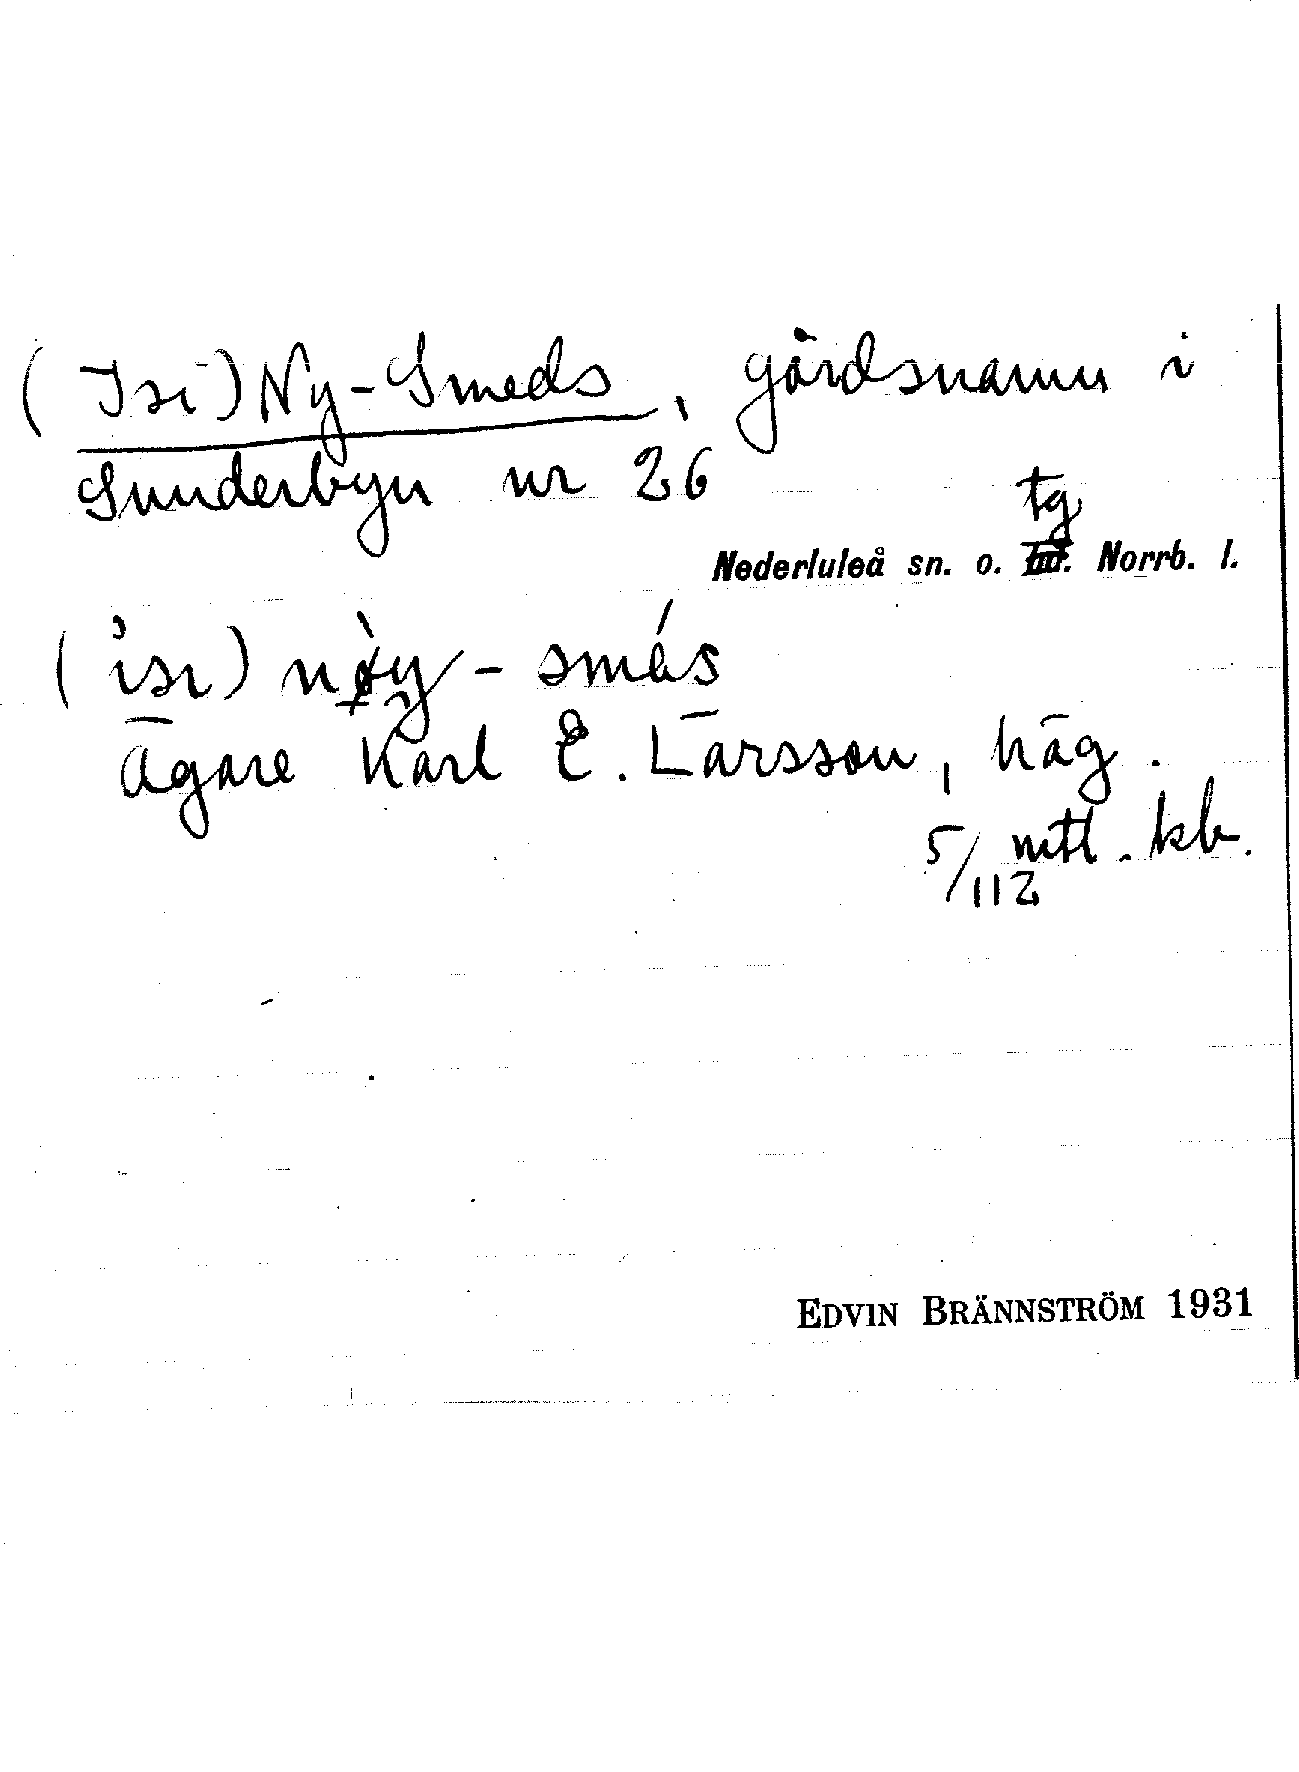 (Isi) Ny-Smeds, gårdsnamn i
Sunderbyn nr 26
tg
Nederluleå sn. o. hd. Norrb. l.
(isi) nøy-smés
Ägare Karl E. Larsson, häg.
5/112 mtl. kb.
EDVIN BRÄNNSTRÖM 1931